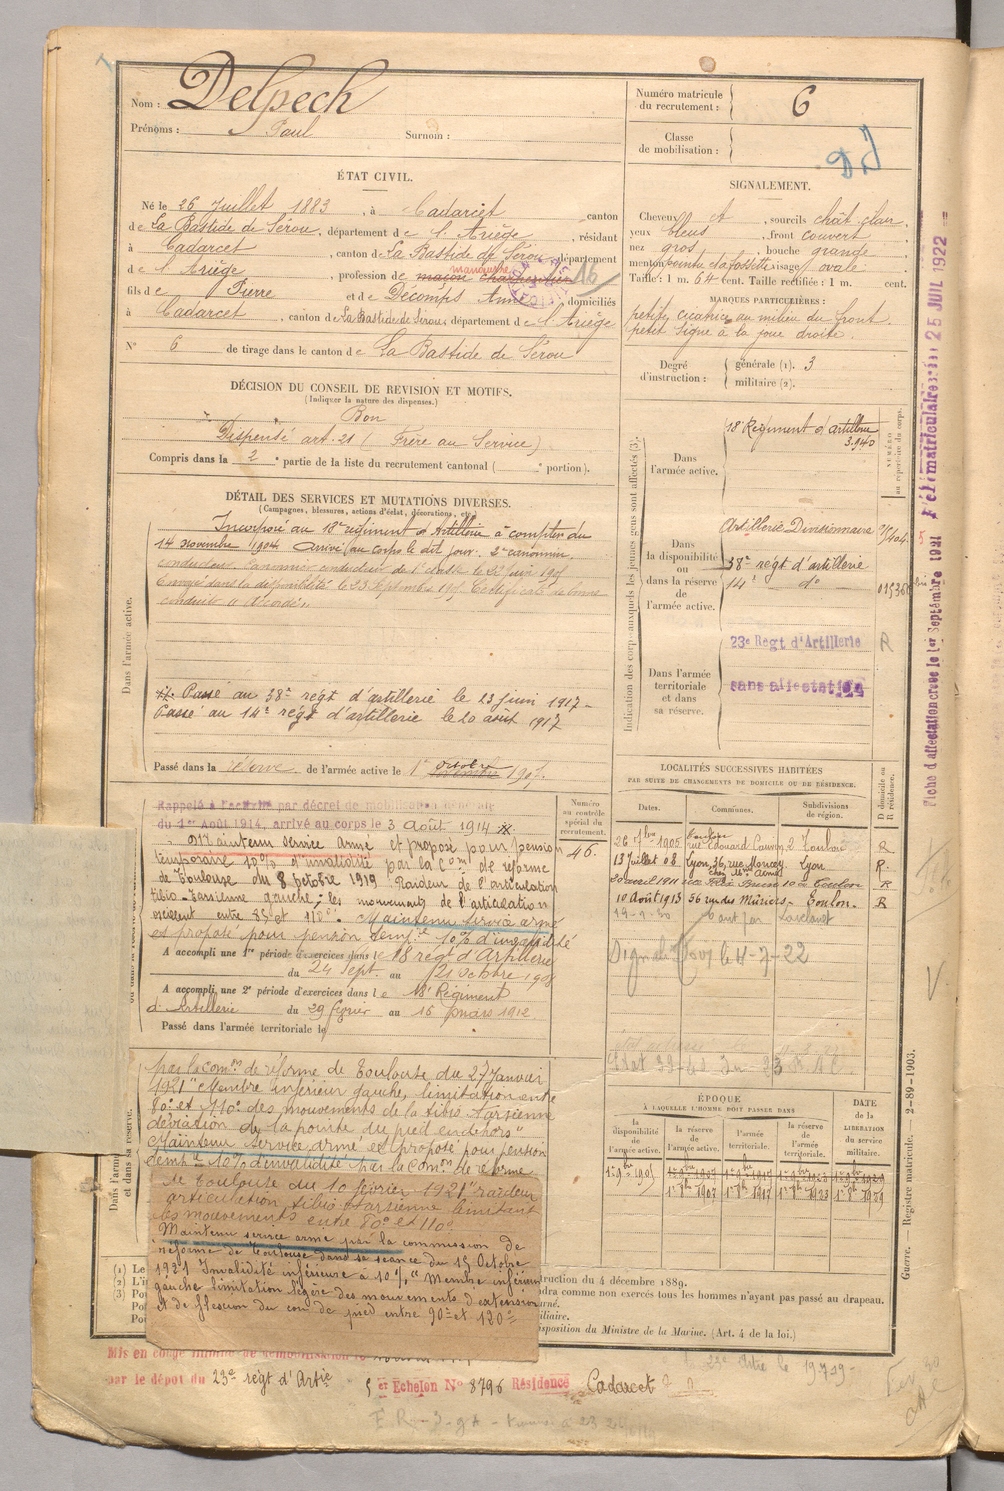 Nom : Delpech
Prénoms : Paul Surnom :
Numéro matricule du recrutement : 6
Classe de mobilisation :
ÉTAT CIVIL.
Né le 26 Juillet 1883, à Cadarcet canton
de La Bastide de Sérou, département de l'Ariège, résidant
à Cadarcet, canton de La Bastide de Sérou, département
de l'Ariège, profession de maçon charpentier manœuvre
16
fils de Pierre et de Décomps Anne, domiciliés
à Cadarcet, canton de La Bastide de Sérou, département de l'Ariège
N° 6 de tirage dans le canton de La Bastide de Sérou
SIGNALEMENT.
Cheveux et, sourcils chât. clair.
yeux bleus, front couvert
nez gros, bouche grande
menton pointu à fossette visage ovale.
Taille : 1 m. 64 cent. Taille rectifiée : 1 m. cent.
MARQUES PARTICULIÈRES :
petite cicatrice au milieu du front.
petit signe à la joue droite.
Degré d'instruction : générale (1). 3
militaire (2).
DÉCISION DU CONSEIL DE REVISION ET MOTIFS.
(Indiquer la nature des dispenses.)
Bon
Dispensé art. 21 (Frère au Service)
Compris dans la 2e partie de la liste du recrutement cantonal ( e portion).
DÉTAIL DES SERVICES ET MUTATIONS DIVERSES.
(Campagnes, blessures, actions d'éclat, décorations, etc.)
Dans l'armée active.
Incorporé au 18e régiment d'Artillerie à compter du
14 novembre 1904. Arrivé au corps le dit jour. 2e canonnier
conducteur. Canonnier conducteur de 1e classe le 22 juin 1905
Envoyé dans la disponibilité le 23 Septembre 1905. Certificat de bonne
conduite accordé.
Passé au 38e régt d'artillerie le 23 juin 1917-
Passé au 14e régt d'artillerie le 20 août 1917
Passé dans la réserve de l'armée active le 1er octobre 1907.
Indication des corps auxquels les jeunes gens sont affectés (3).
NUMÉRO au répertoire du corps.
Dans l'armée active.
18e Régiment d'artillerie
3.940
Dans la disponibilité ou dans la réserve de l'armée active.
Artillerie Divisionnaire
38e régt d'artillerie
14e do
Dans l'armée territoriale et dans sa réserve.
23e Régt d'Artillerie R
sans affectation
Fiche d'affectation créée le 1er Septembre 1921
25 JUIL 1922
LOCALITÉS SUCCESSIVES HABITÉES
PAR SUITE DE CHANGEMENTS DE DOMICILE OU DE RÉSIDENCE.
Dates. Communes. Subdivisions de région. D domicile ou R résidence.
26 7bre 1905 Toulon rue Edouard Toulon R
13 Juillet 08 Lyon, 36, rue Moncey Lyon R.
20 avril 1911 Toulon R
10 Août 1913 56 rue des Mûriers Toulon. R
Signalé le 4-7-22
Numéro au contrôle spécial du recrutement.
46.
Rappelé à l'activité par décret de mobilisation générale
du 1er Août 1914, arrivé au corps le 3 Août 1914
Maintenu service armé et proposé pour pension
temporaire 10% d'invalidité par la Com. de réforme
de Toulouse du 8 octobre 1919 : Raideur de l'articulation
tibio-tarsienne gauche; les mouvements de l'articulation
oscillent entre 85° et 110°. Maintenu service armé
et proposé pour pension temp.re 10% d'invalidité
A accompli une 1re période d'exercices dans le 18 régt d'Artillerie
du 24 Sept. au 21 Octobre 1908
A accompli une 2e période d'exercices dans le 18e Régiment
d'Artillerie du 29 février au 16 mars 1912
Passé dans l'armée territoriale le
par la Comon de réforme de Toulouse du 27 Janvier
1921 "Membre inférieur gauche, limitation entre
80° et 110° des mouvements de la tibio Tarsienne
déviation de la pointe du pied en dehors"
Maintenu Service armé et proposé pour pension
temp.re 10% d'invalidité par la Comon de réforme
de Toulouse du 10 février 1921 "raideur
articulation tibio tarsienne limitant
les mouvements entre 80° et 110°
Maintenu service armé par la commission de
réforme de Toulouse dans sa séance du 15 Octobre
1921 Invalidité inférieure à 10% "Membre inférieur
gauche limitation légère des mouvements d'extension
et de flexion du cou de pied entre 90° et 120°"
ÉPOQUE
À LAQUELLE L'HOMME DOIT PASSER DANS
la disponibilité de l'armée active. la réserve de l'armée active. l'armée territoriale. la réserve de l'armée territoriale.
DATE de la LIBÉRATION du service militaire.
(1) Le
(2) L'i
(3) Pou
struction du 4 décembre 1889.
ndra comme non exercés tous les hommes n'ayant pas passé au drapeau.
sposition du Ministre de la Marine. (Art. 4 de la loi.)
Guerre. — Registre matricule. — 2-89-1903.
Mis en congé illimité de démobilisation le
par le dépôt du 23e régt d'Artie 5e Echelon N° 8796 Résidence Cadarcet